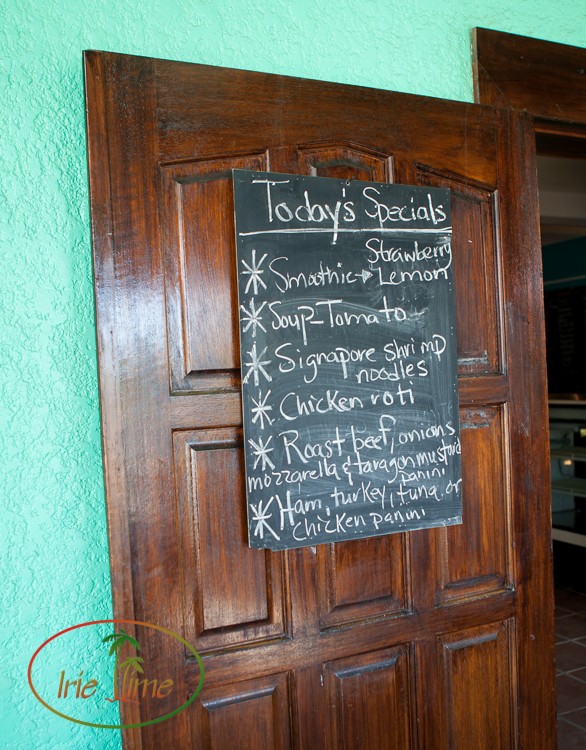 Today's Specials
Strawberry
* Smoothie → Lemon
* Soup-Tomato
* Signapore shrimp
noodles
* Chicken roti
* Roast beef, onions
mozzarella & taragon mustard
panini
* Ham, turkey, tuna or
Chicken panini
Irie Lime